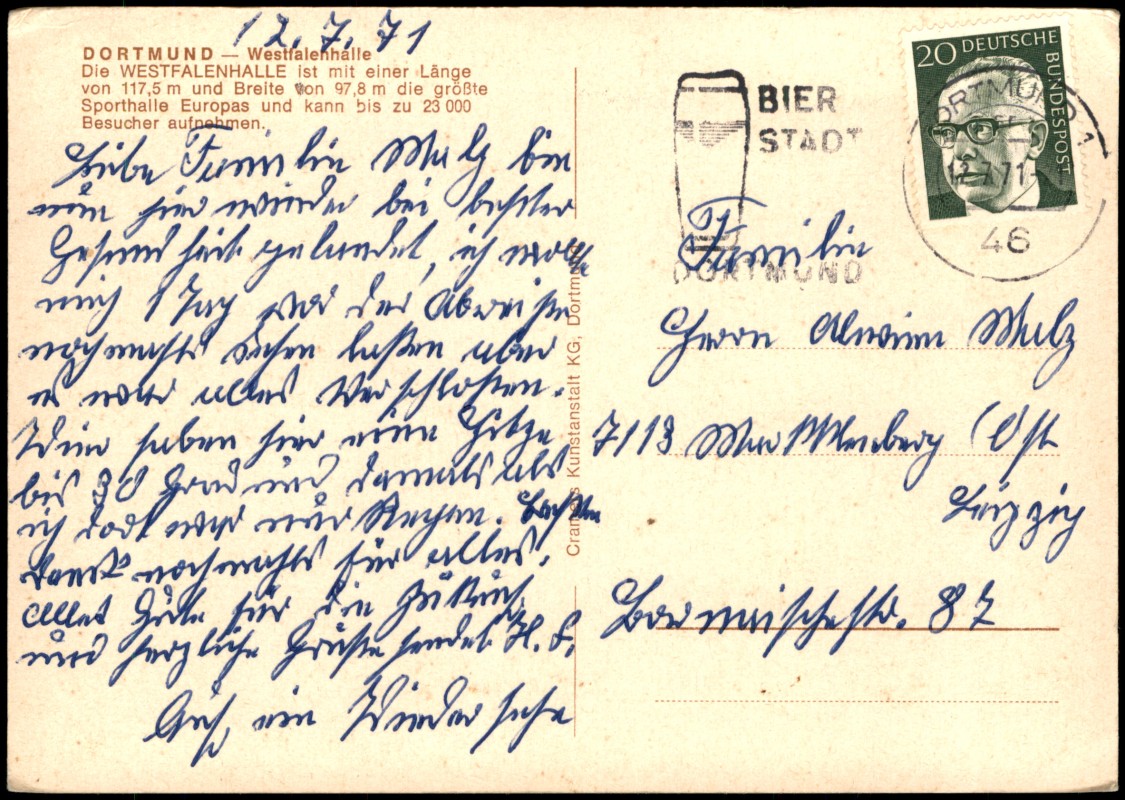 12.7.71
DORTMUND — Westfalenhalle
Die WESTFALENHALLE ist mit einer Länge
von 117,5 m und Breite von 97,8 m die größte
Sporthalle Europas und kann bis zu 23 000
Besucher aufnehmen.
Liebe Familie Malz bin
nun hier wieder bei bester
Gesundheit gelandet, ich wollte
mich 1 Tag vor der Abreise
nochmals sehen laßen aber
es war alles verschloßen.
Wir haben hier eine Hitze
bis 30 Grad und damals als
ich dort war nur Regen.
Dank nochmals für alles.
Alles Gute für die Zukunft
und herzliche Grüße sendet H. S.
Auf ein Wiedersehn
Cramers Kunstanstalt KG, Dortmund
BIER
STADT
DORTMUND
20 DEUTSCHE
BUNDESPOST
DORTMUND 1
12.7.71
46
Familie
Herrn Alwin Malz
7113 Markkleeberg (Ost
Leipzig
Bornaischestr. 87